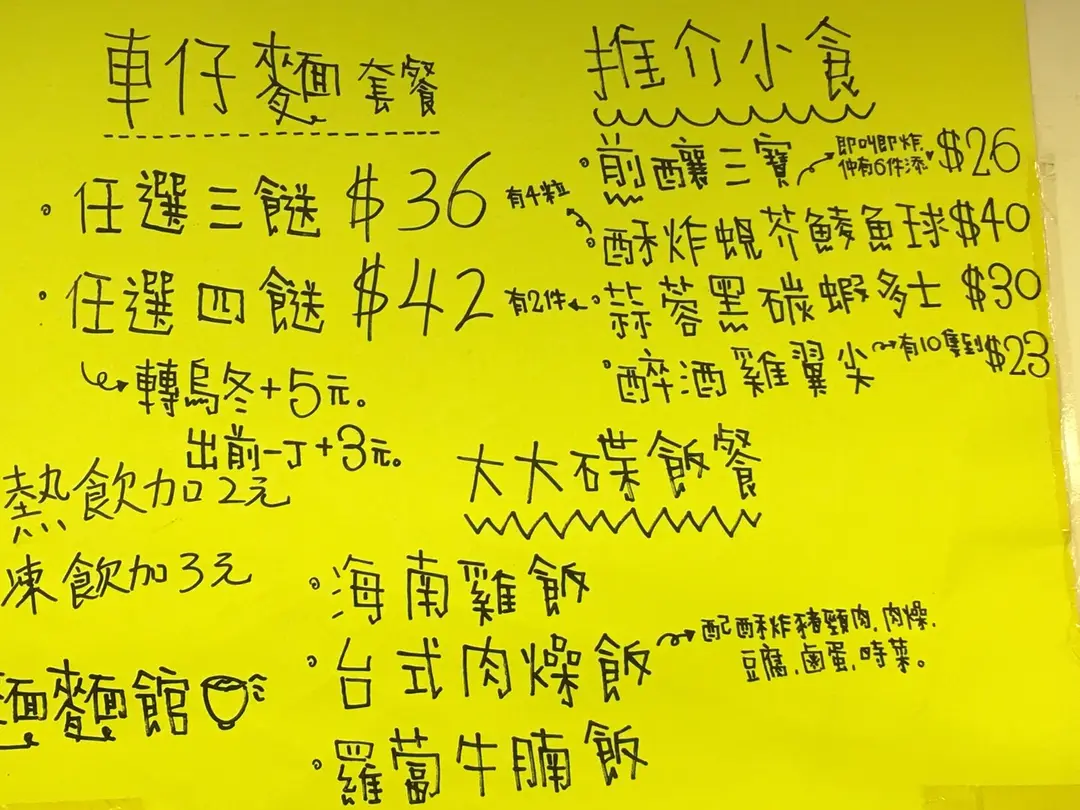 車仔麵套餐
任選三餸 $36
任選四餸 $42
轉烏冬+5元。
出前一丁+3元。
熱飲加2元
凍飲加3元
麵麵館
推介小食
煎釀三寶 即叫即炸 仲有6件添 $26
有4粒 酥炸蜆芥鯪魚球 $40
有2件 蒜蓉黑碳蝦多士 $30
醉酒雞翼尖 有10隻到 $23
大大碟飯餐
海南雞飯
台式肉燥飯
配酥炸豬頸肉、肉燥、
豆腐、鹵蛋、時菜。
羅蔔牛腩飯